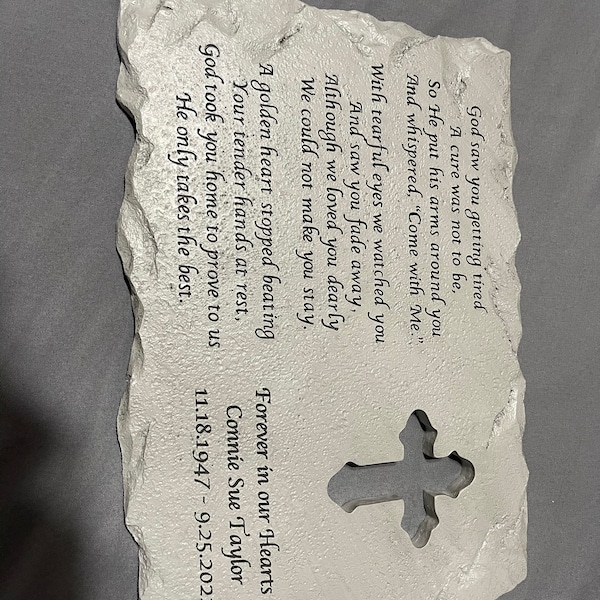 God saw you getting tired
A cure was not to be,
So He put his arms around you
And whispered, "Come with Me."
With tearful eyes we watched you
And saw you fade away,
Although we loved you dearly
We could not make you stay.
A golden heart stopped beating
Your tender hands at rest,
God took you home to prove to us
He only takes the best.
Forever in our Hearts
Connie Sue Taylor
11.18.1947 - 9.25.202